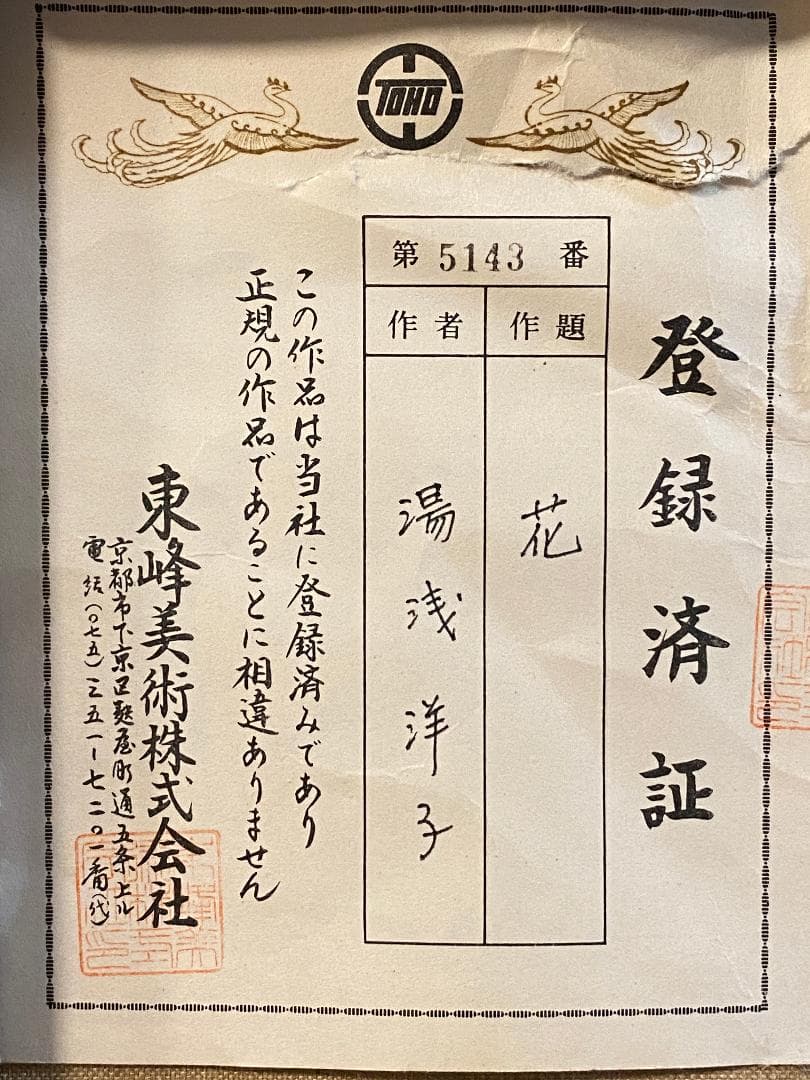 TOHO
登録済証
第 5143 番
作題
花
作者
湯浅洋子
この作品は当社に登録済みであり
正規の作品であることに相違ありません
東峰美術株式会社
京都市下京区麸屋町通五条上ル
電話(〇七五)三五一-七二〇一番(代)